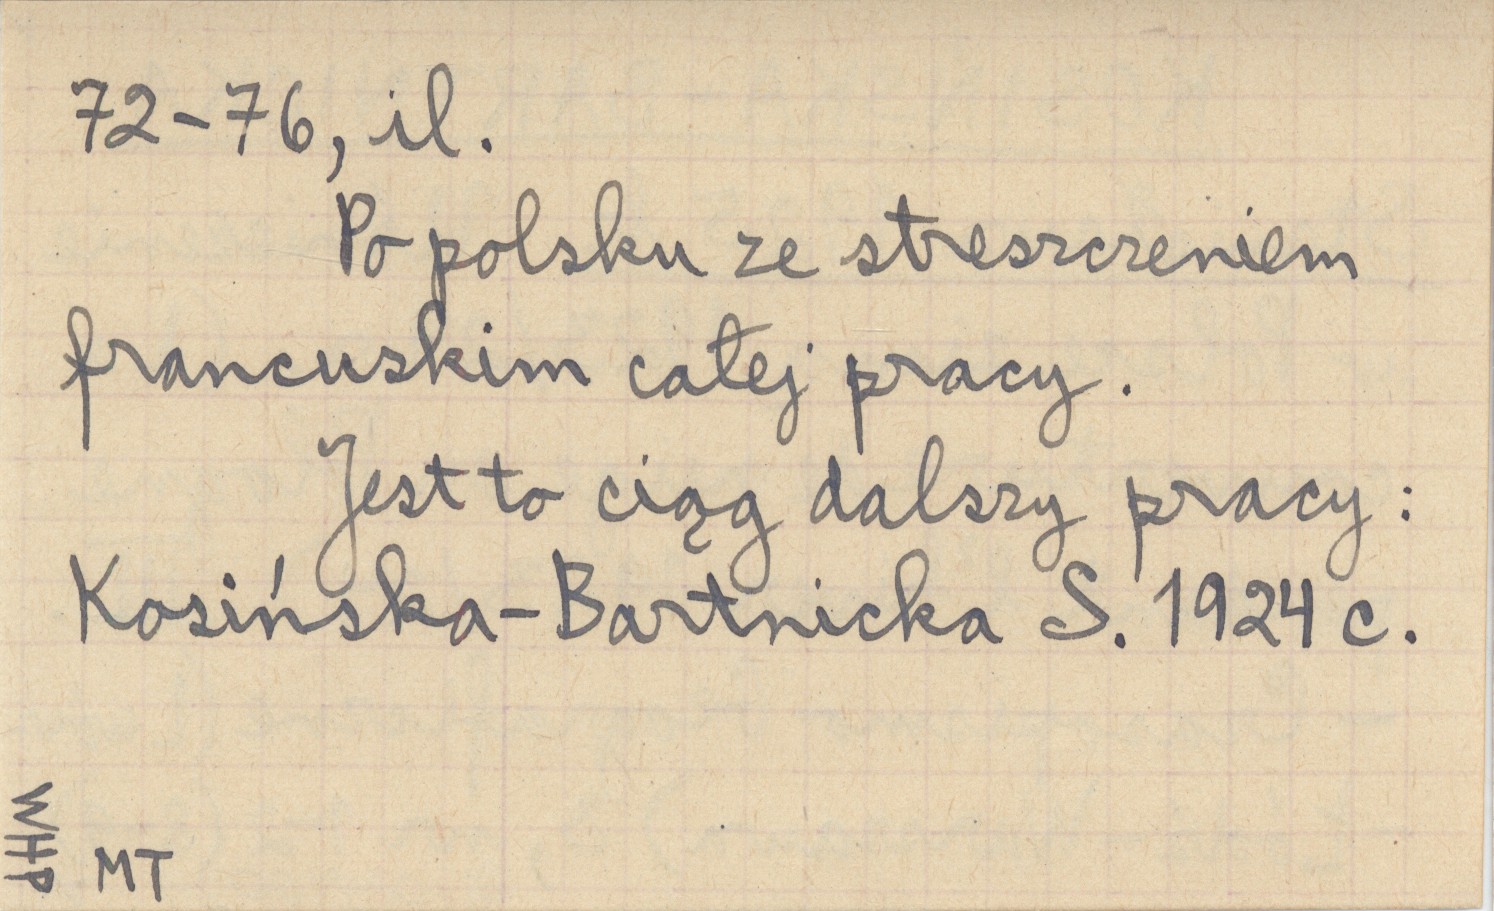 72-76, il.
Po polsku ze streszczeniem
francuskim całej pracy.
Jest to ciąg dalszy pracy:
Kosińska-Bartnicka S. 1924 c.
WHP
MT